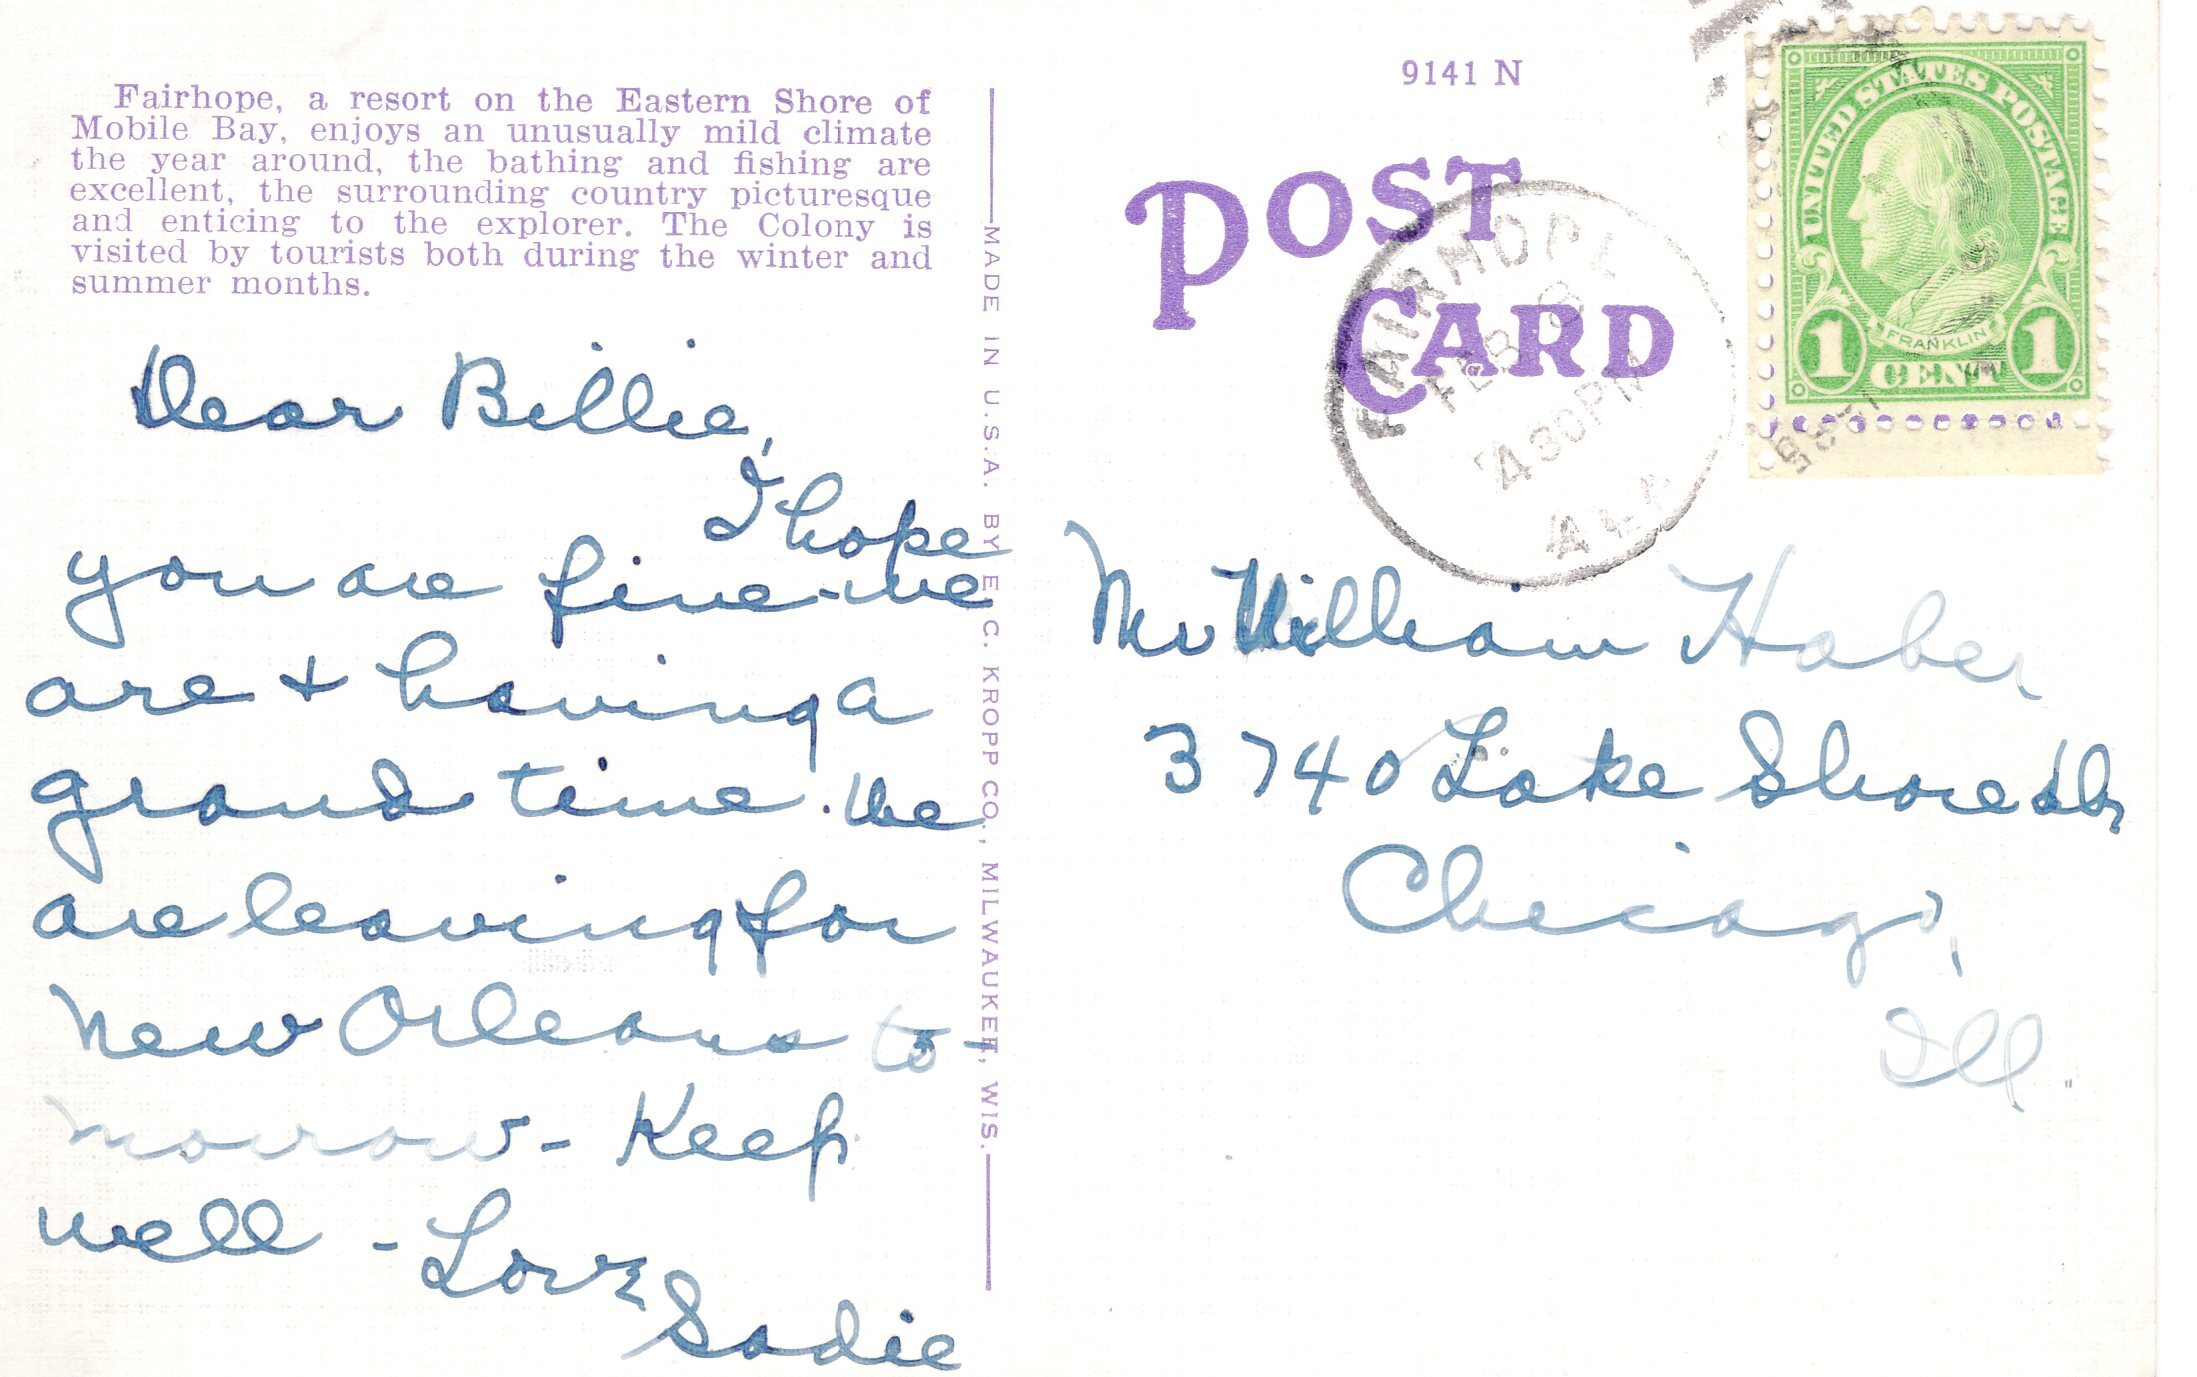 Fairhope, a resort on the Eastern Shore of
Mobile Bay, enjoys an unusually mild climate
the year around, the bathing and fishing are
excellent, the surrounding country picturesque
and enticing to the explorer. The Colony is
visited by tourists both during the winter and
summer months.
Dear Billie,
I hope
you are fine - we
are + having a
grand time. We
are leaving for
New Orleans to-
morrow - Keep
well - Love
Sadie
MADE IN U.S.A. BY E. C. KROPP CO., MILWAUKEE, WIS.
9141 N
POST
CARD
FAIRHOPE
FEB
430PM
ALA
UNITED STATES POSTAGE
FRANKLIN
1 CENT 1
Mr William Haber
3740 Lake Shore Dr
Chicago,
Ill.